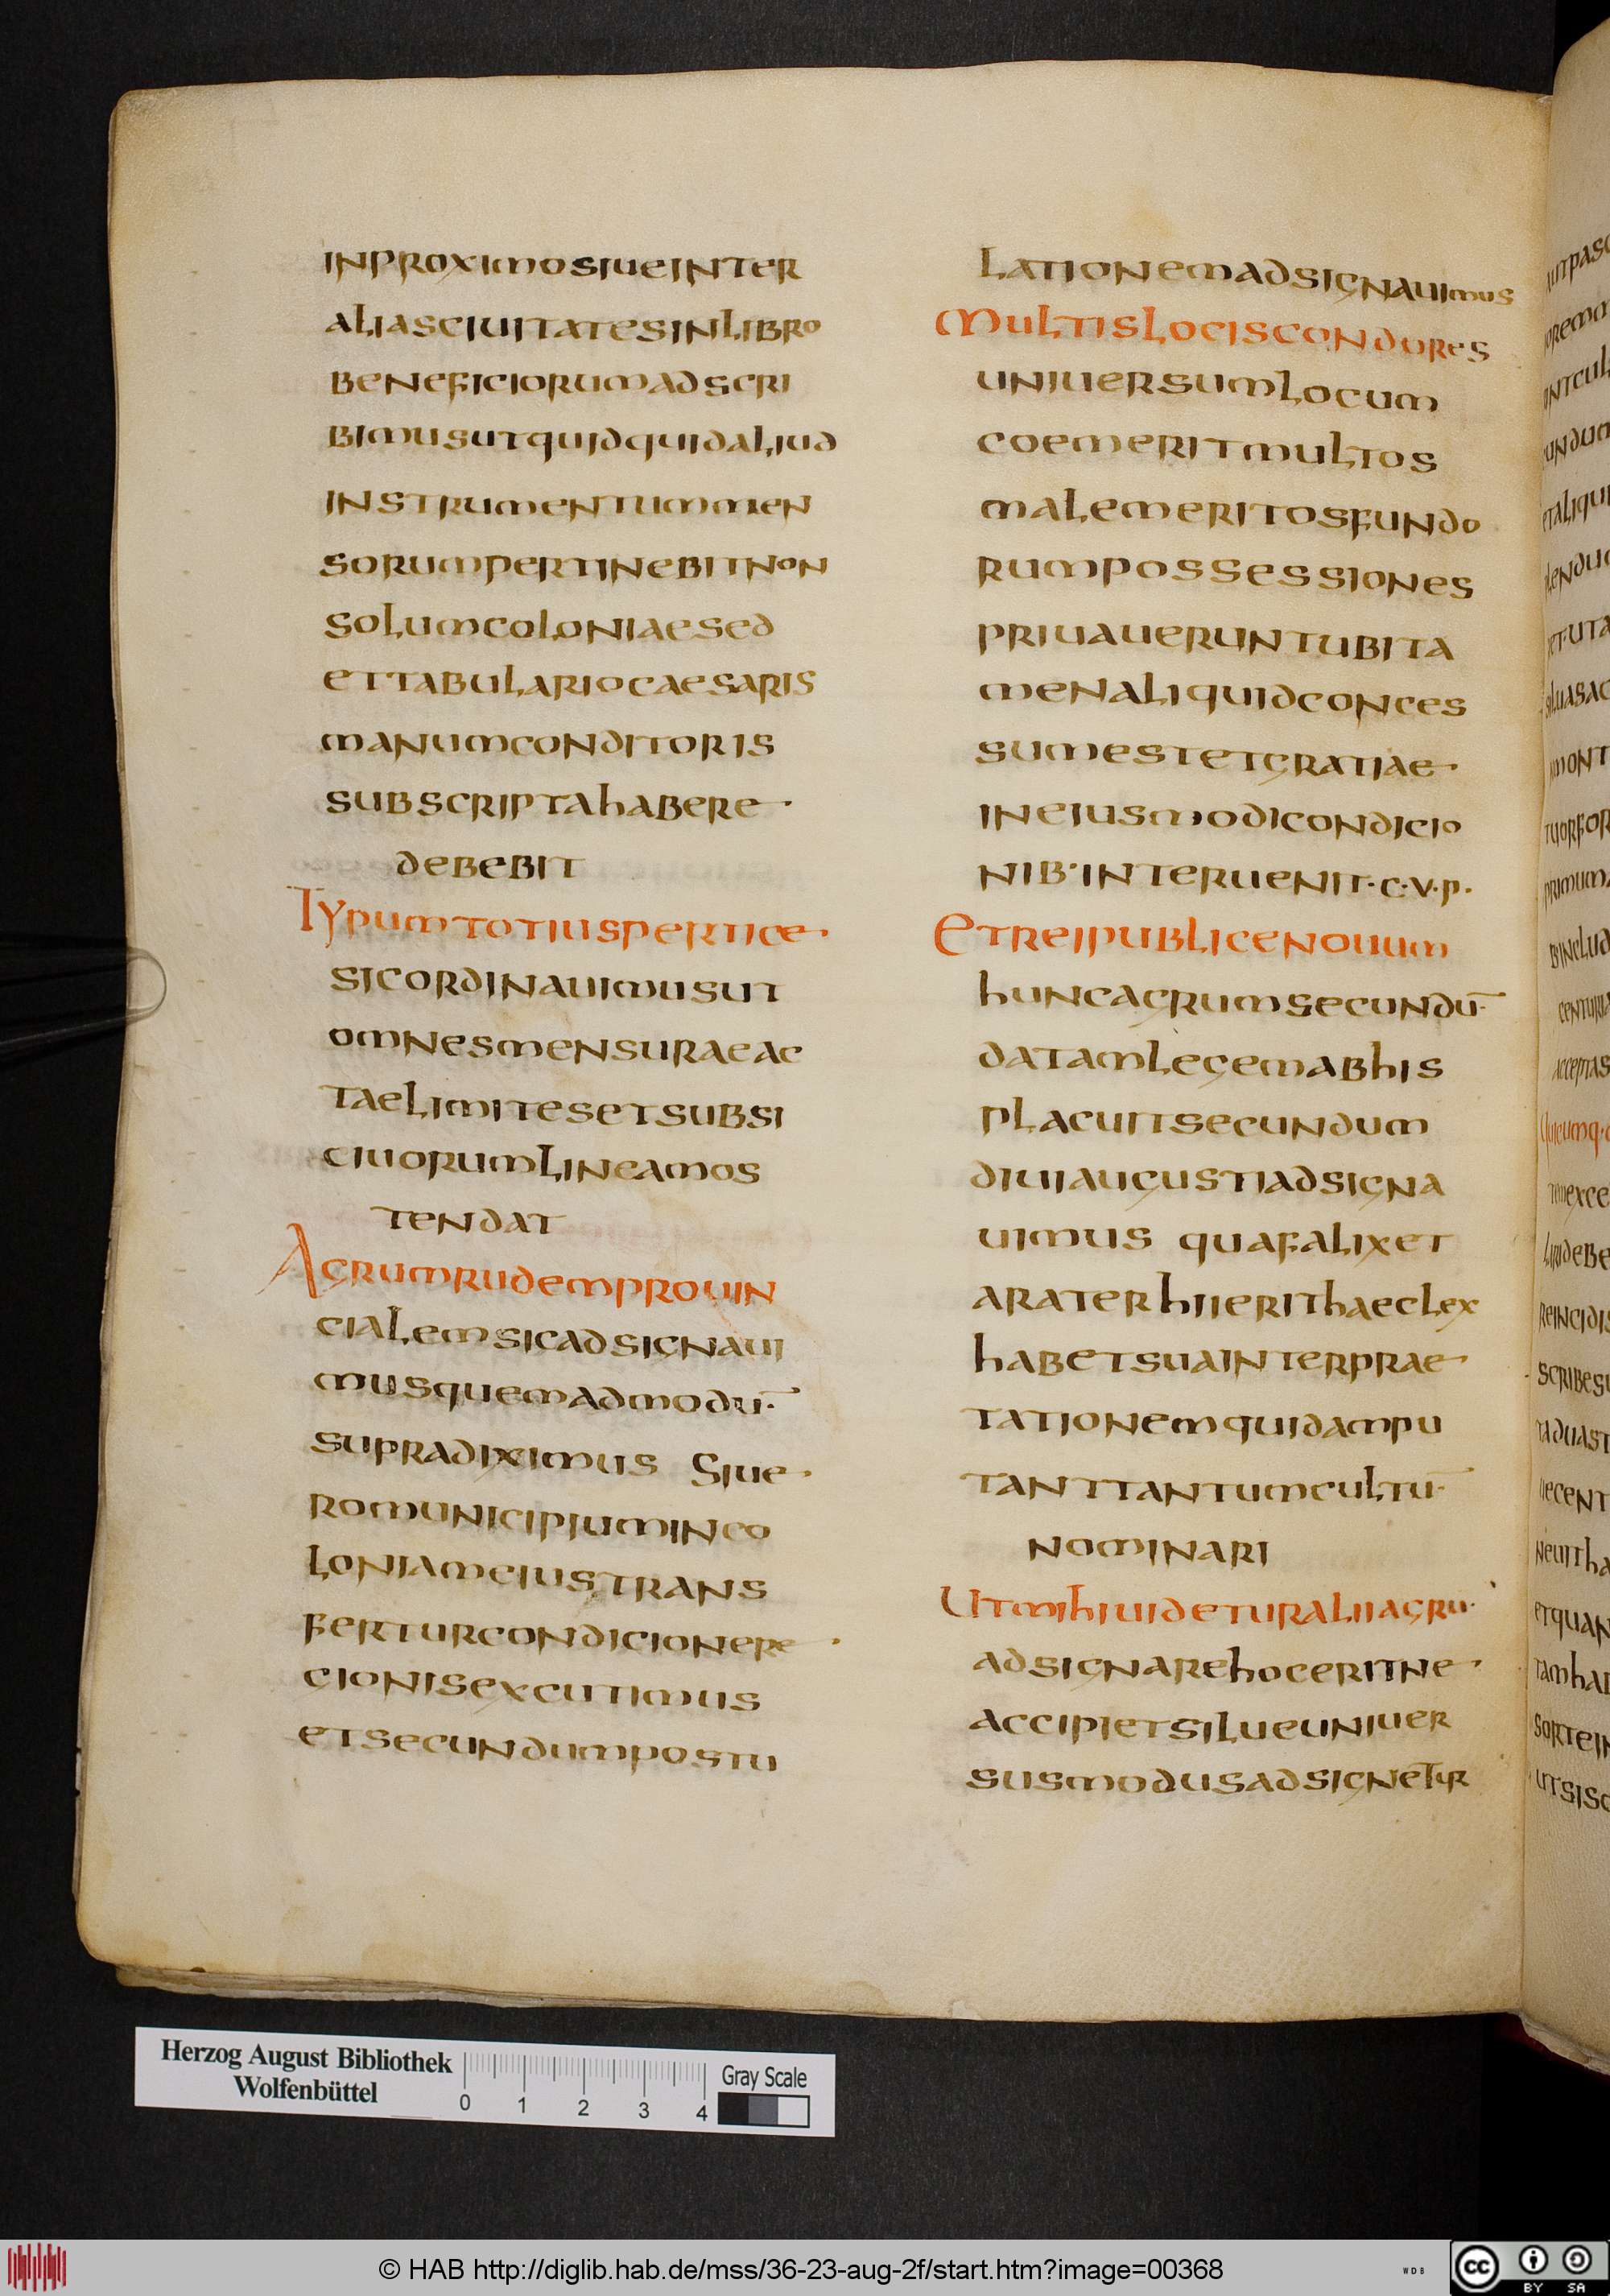 INPROXIMOSIUEINTER
ALIASCIUITATESINLIBRO
BENEFICIORUMADSCRI
BIMUSUTQUIDQUIDALIUD
INSTRUMENTUMMEN
SORUMPERTINEBITNON
SOLUMCOLONIAESED
ETTABULARIOCAESARIS
MANUMCONDITORIS
SUBSCRIPTAHABERE·
DEBEBIT
TYPUMTOTIUSPERTICE·
SICORDINAUIMUSUT
OMNESMENSURAEAC
TAELIMITESETSUBSI
CIUORUMLINEAMOS
TENDAT
AGRUMRUDEMPROUIN
CIALEMSICADSIGNAUI
MUSQUEMADMODU̅·
SUPRADIXIMUS SIUE·
ROMUNICIPIUMINCO
LONIAMEIUSTRANS
FERTURCONDICIONERE·
CIONISEXCUTIMUS
ETSECUNDUMPOSTU
LATIONEMADSIGNAUIMUS
MULTISLOCISCONDORES
UNIUERSUMLOCUM
COEMERITMULTOS
MALEMERITOSFUNDO
RUMPOSSESSIONES
PRIUAUERUNTUBITA
MENALIQUIDCONCES
SUMESTETGRATIAE·
INEIUSMODICONDICIO
NIB·INTERUENIT·C·V·P·
ETREIPUBLICENOUUM
HUNCAGRUMSECUNDU̅·
DATAMLEGEMABHIS
PLACUITSECUNDUM
DIUIAUGUSTIADSIGNA
UIMUS QUAFALIXET
ARATERHIIERITHAECLEX
HABETSUAINTERPRAE·
TATIONEMQUIDAMPU
TANTTANTUMCULTU̅·
NOMINARI
UTMIHIUIDETURALIIAGRU·
ADSIGNAREHOCERITNE·
ACCIPIETSILUEUNIUER
SUSMODUSADSIGNETUR
Herzog August Bibliothek
Wolfenbüttel
0 1 2 3 4
Gray Scale
© HAB http://diglib.hab.de/mss/36-23-aug-2f/start.htm?image=00368
WDB
cc BY SA